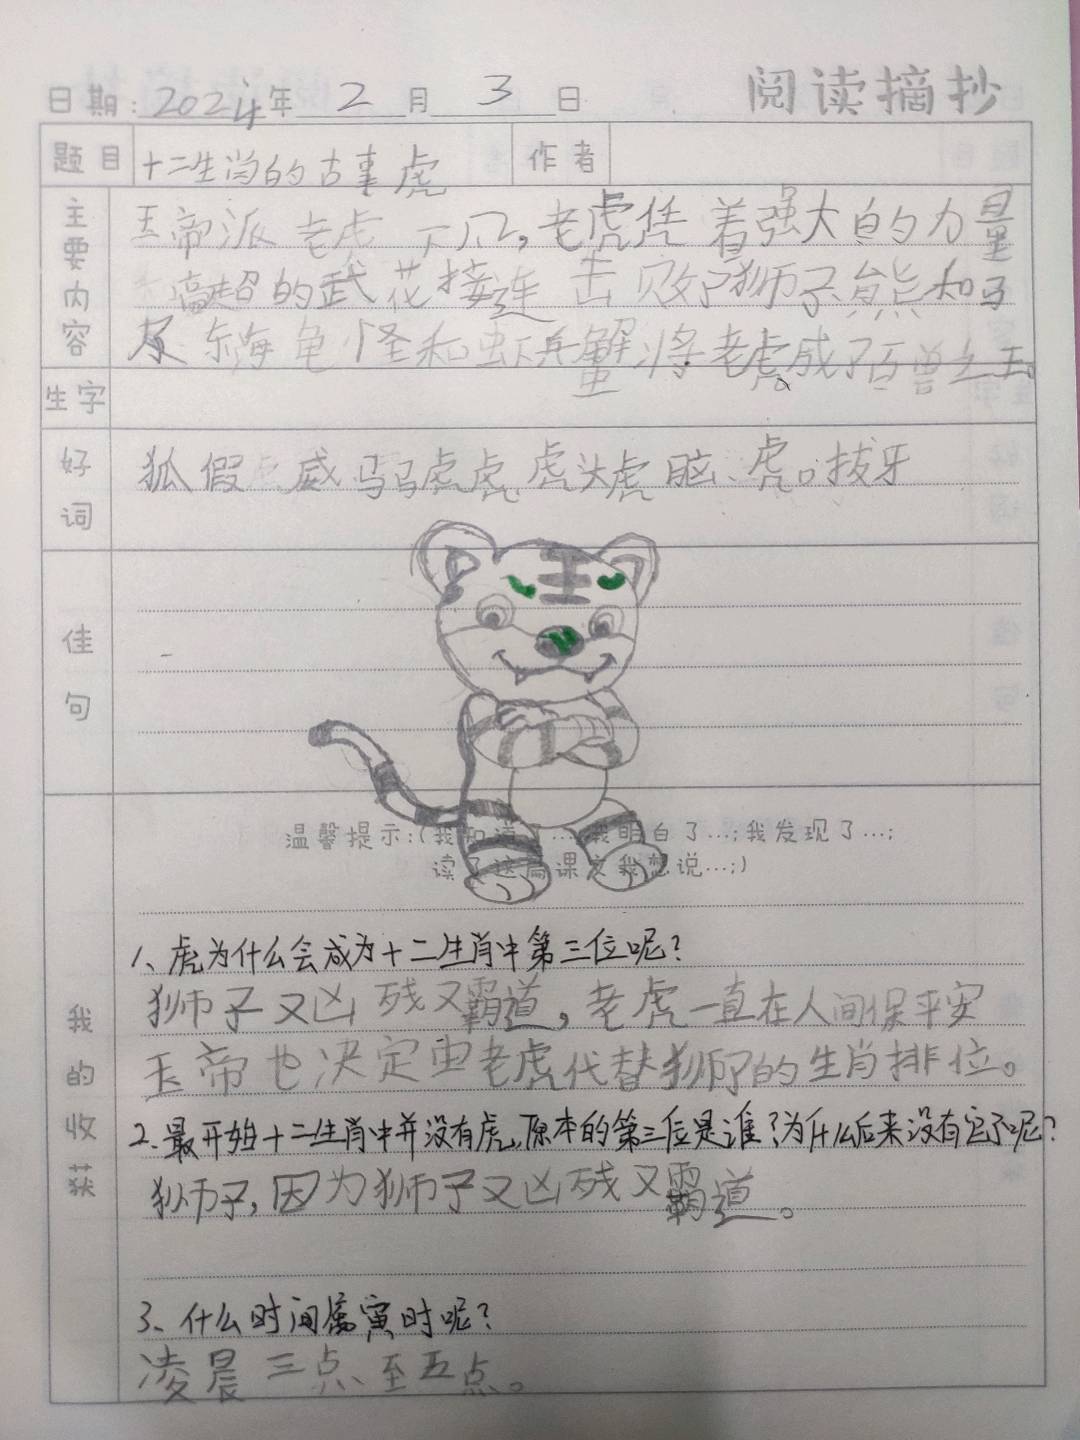 日期：2024年2月3日 阅读摘抄
题目 十二生肖的古事虎 作者
主要内容
玉帝派老虎下凡，老虎凭着强大的力量
高超的武花接连击败了狮子、熊和马
东海龟怪和虾兵蟹将老虎成了百兽之王
生字
好词
狐假虎威 马马虎虎、虎头虎脑、虎口拔牙
佳句
王
温馨提示:(我知道了…;我明白了…;我发现了…;
读了这篇课文我想说…;)
我的收获
1、虎为什么会成为十二生肖中第三位呢？
狮子又凶残又霸道，老虎一直在人间保平安
玉帝也决定由老虎代替狮子的生肖排位。
2、最开始十二生肖中并没有虎，原本的第三位是谁？为什么后来没有它了呢？
狮子，因为狮子又凶残又霸道。
3、什么时间属寅时呢？
凌晨三点至五点。